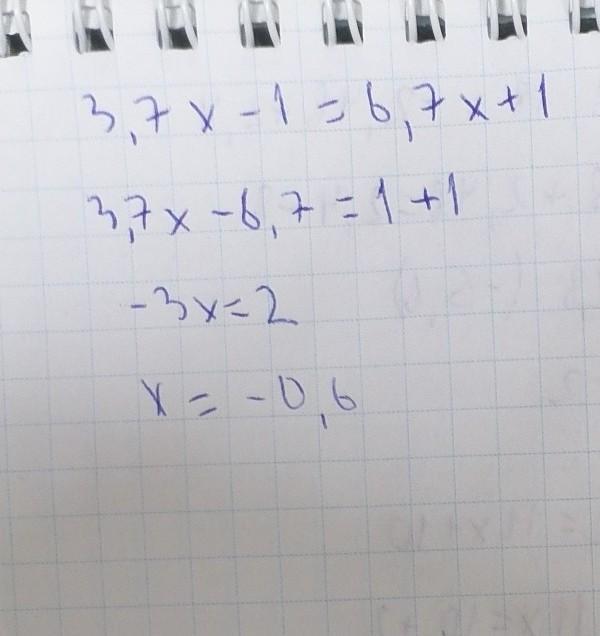 3,7x-1=6,7x+1
3,7x-6,7=1+1
-3x=2
x=-0,6